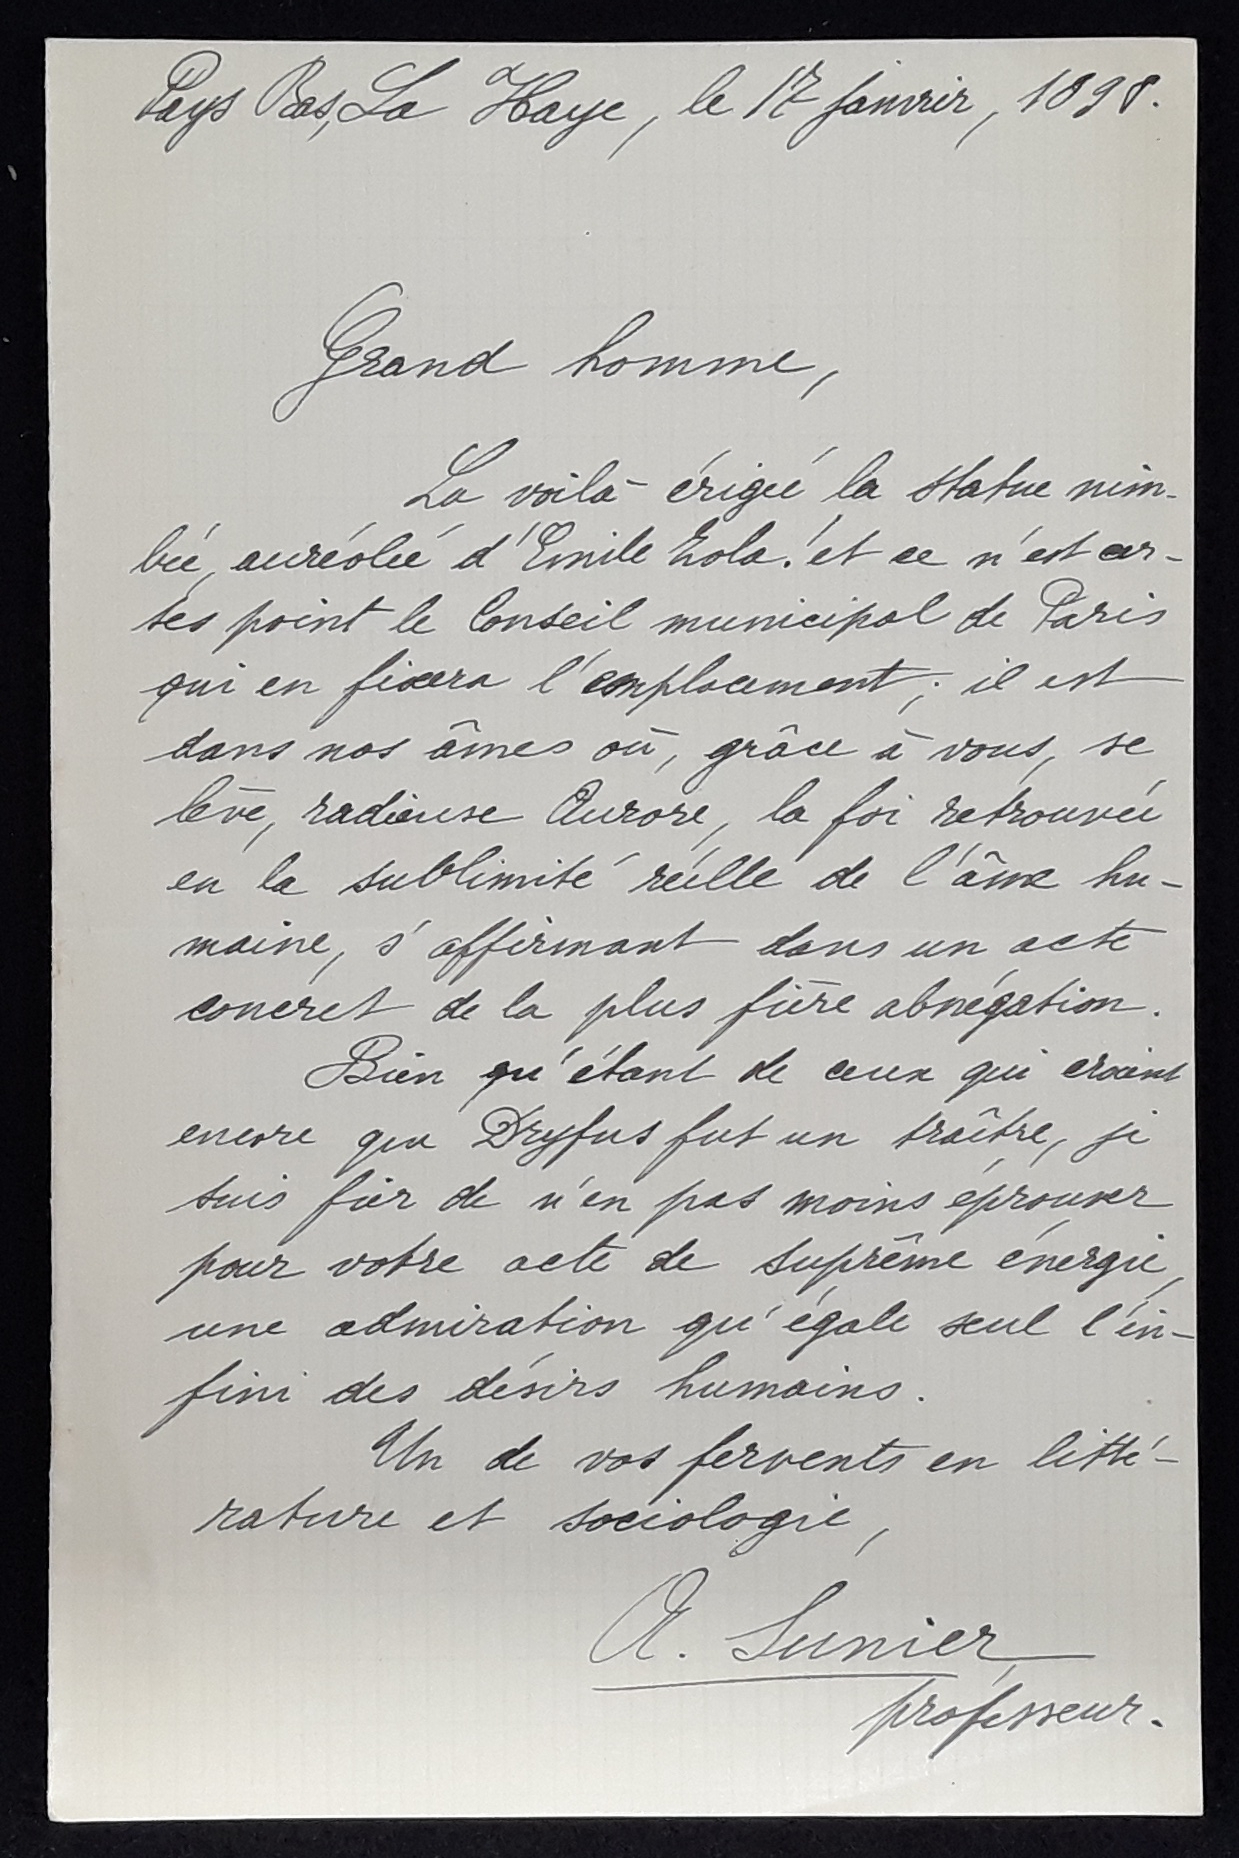 Pays Bas, La Haye, le 17 janvier, 1898.
Grand homme,
La voilà érigée la statue nim-
bée, auréolée d'Emile Zola! et ce n'est cer-
tes point le Conseil municipal de Paris
qui en fixera l'emplacement; il est
dans nos âmes où, grâce à vous, se
lève, radieuse Aurore, la foi retrouvée
en la sublimité réelle de l'âme hu-
maine, s'affirmant dans un acte
concret de la plus fière abnégation.
Bien qu'étant de ceux qui croient
encore que Dryfus fut un traître, je
suis fier de n'en pas moins éprouver
pour votre acte de suprême énergie,
une admiration qu'égale seul l'in-
fini des désirs humains.
Un de vos fervents en litté-
rature et sociologie,
A. Sunier
professeur.